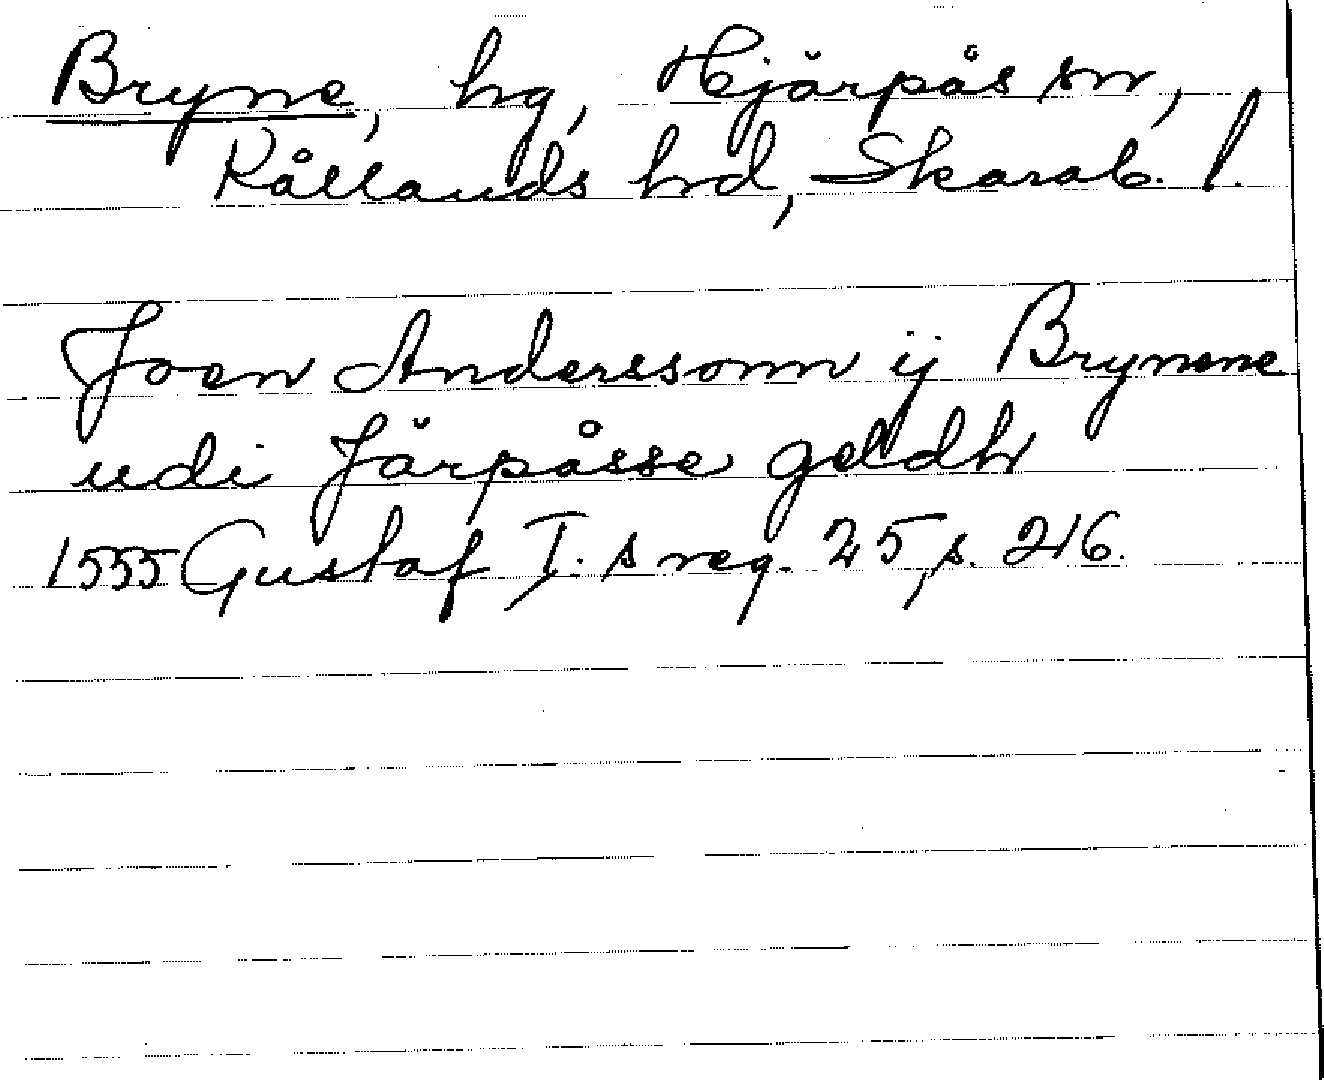 Bryne, hg, Hjärpås sn,
Kållands hd, Skarab. l.
Joen Anderssonn ij Brynne
udi Järpåsse geldh
1555 Gustaf I. s reg. 25, s. 216.